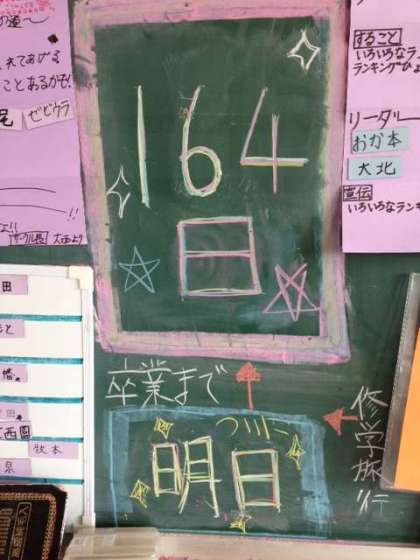 れてあげる
ことあるかぞ!
ゼビウラ
!!
サークル長
田
西園
牧本
泉
164
日
卒業まで
つ川ー
明日
修学旅行
すること
いろいろなラ
ランキングひょ
リーダー
おか本
大北
宣伝
いろいろなラン